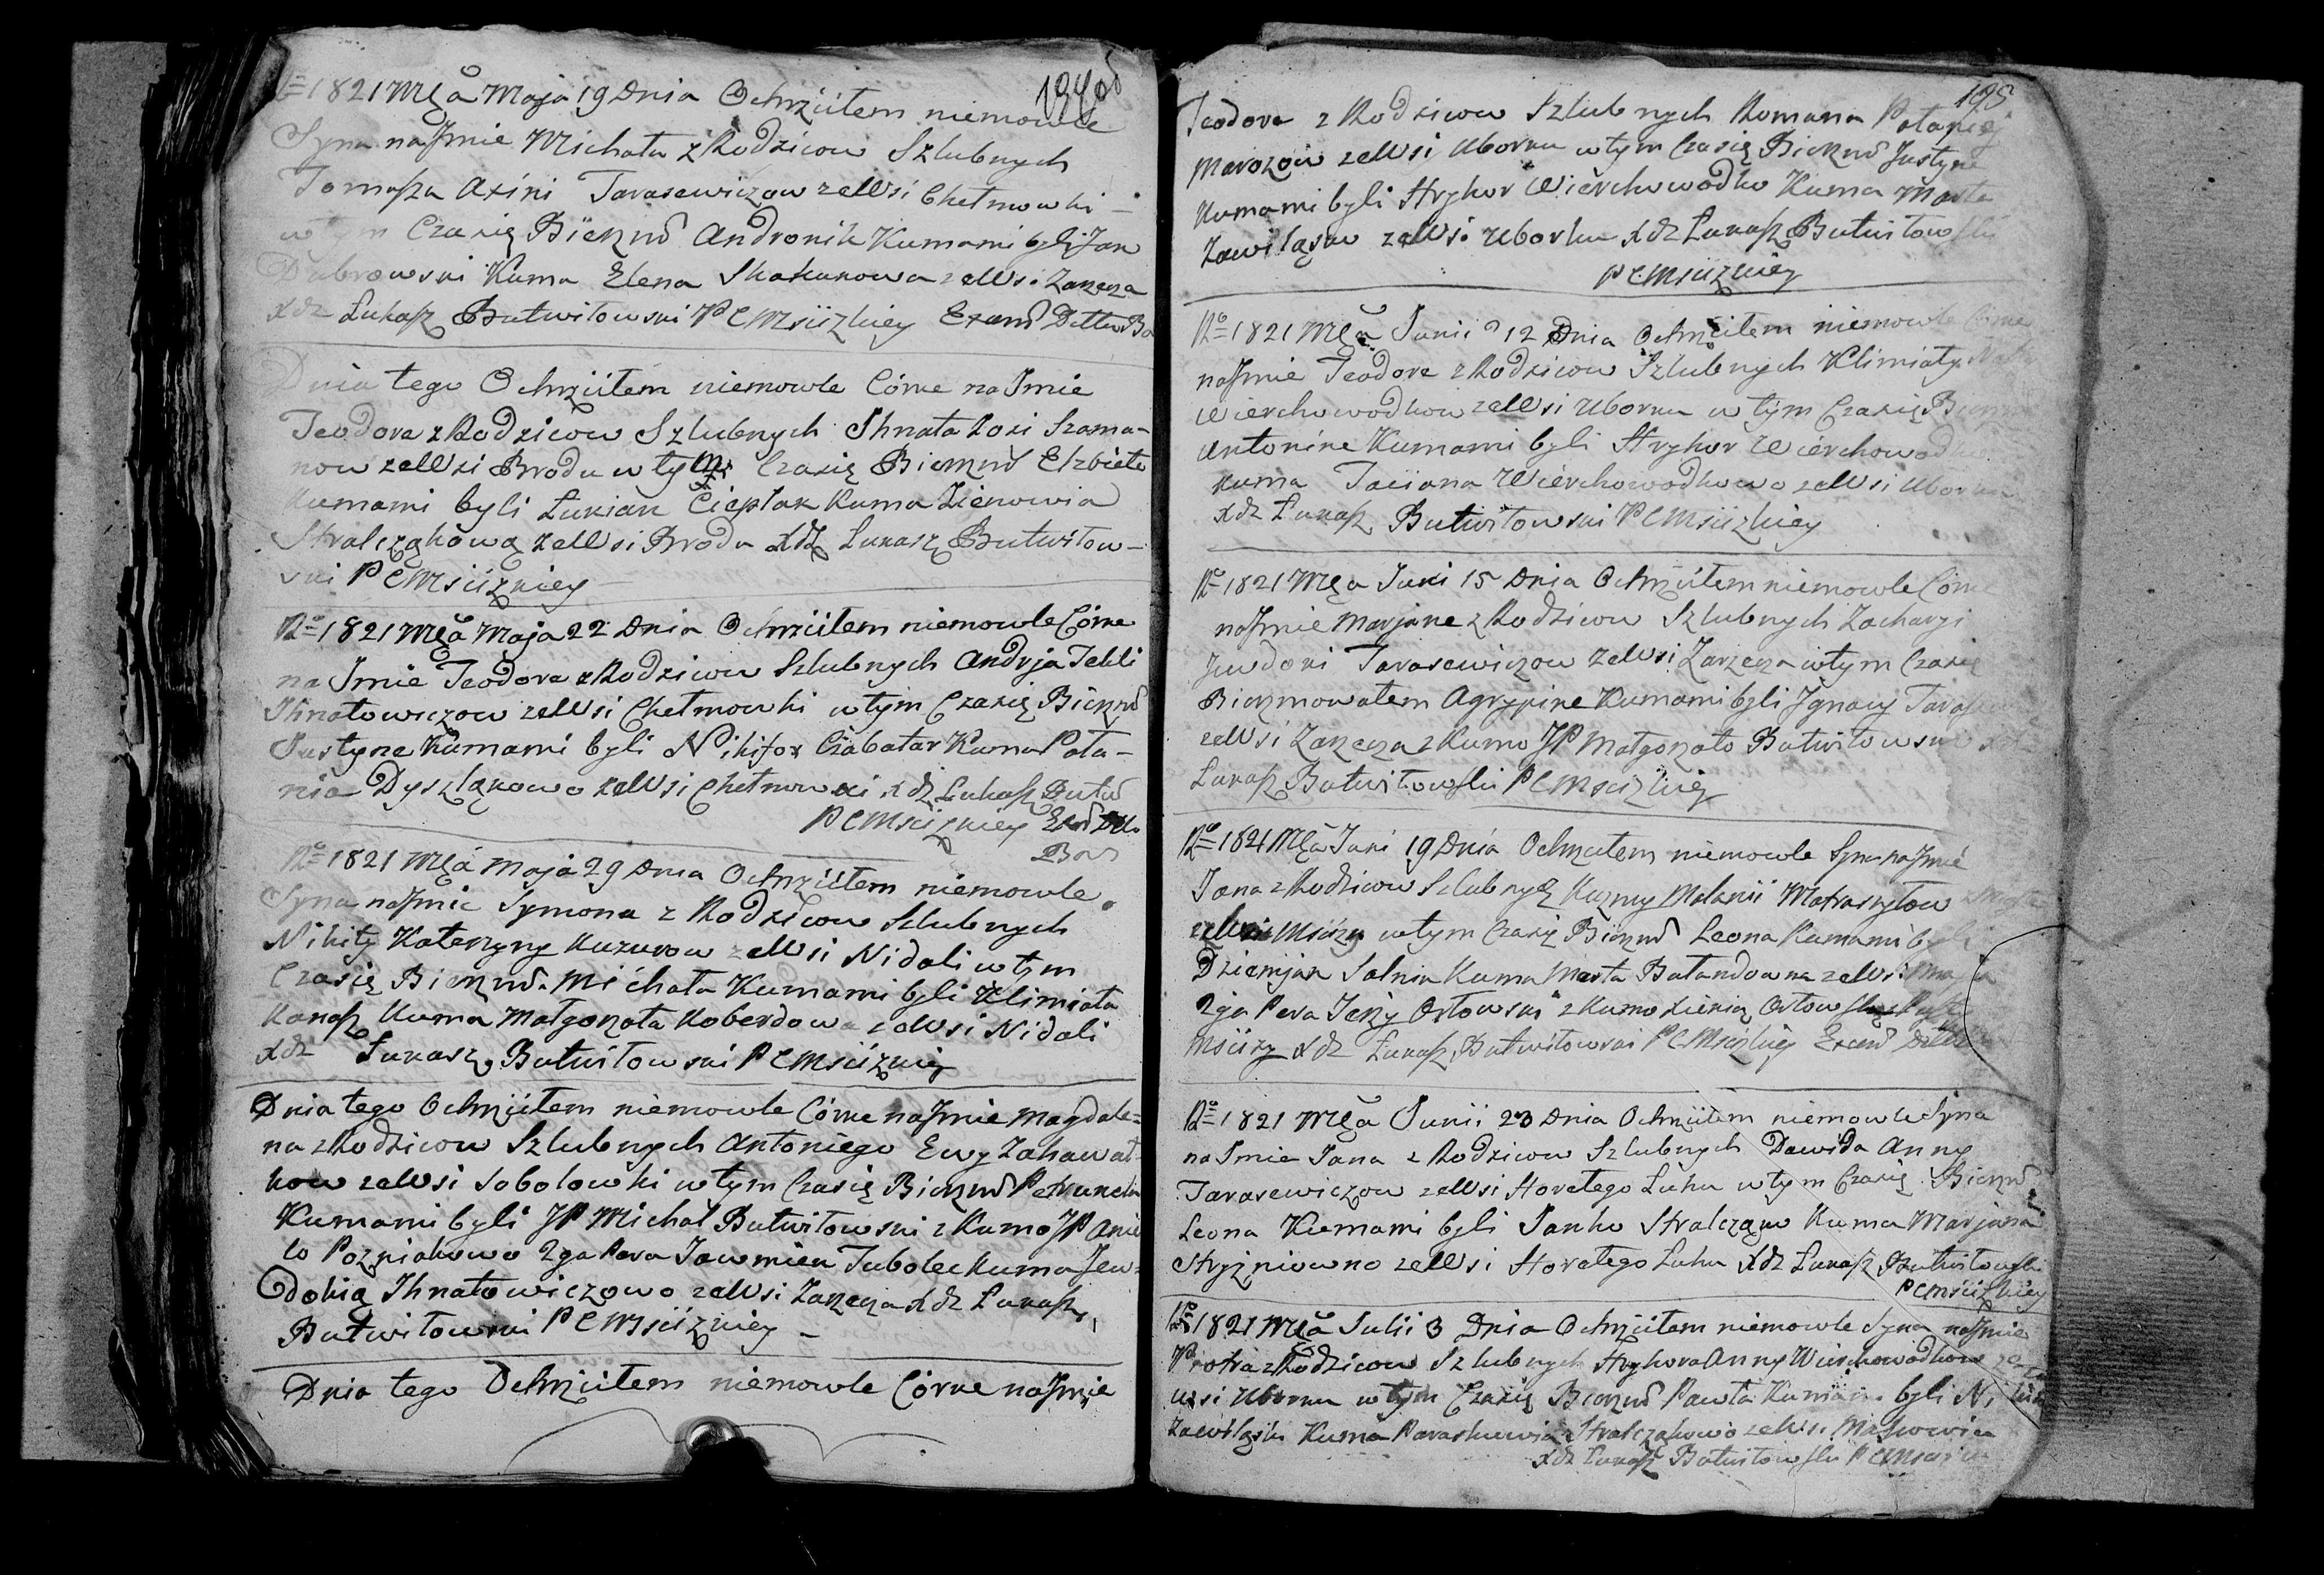 194 od
1821 Mca Maja 19 Dnia Ochrzciłem niemowle
Syna na Imie Michała z Rodzicow Szlubnych
Tomasza Axini Tarasewiczow ze Wsi Chełmowki –
w tym Czasię Bierzmd Andronik Kumami byli Jan
Dubrowski Kuma Elena Skakunowa ze Wsi Zarzeza
Xdz Łukasz Butwiłowski P C Msciizkiey
Dnia tego Ochrzciłem niemowle Córke na Imie
Teodore z Rodzicow Szlubnych Ihnata Rozi Szama-
now ze Wsi Brodu w tym Czasię Bierzmd Elzbiete
Kumami byli Łukian Cieplak Kuma Zienowia
Stralczakowa ze Wsi Brodu Xdz Łukasz Butwiłow-
ski P C Msciizkiey
Ro 1821 Mca Maja 22 Dnia Ochrzciłem niemowle Córke
na Imie Teodore z Rodzicow Szlubnych Andryja Tekli
Ihnatowiczow ze Wsi Chełmowki w tym Czasię Bierzmd
Justyne Kumami byli Nikifor Czabatar Kuma Pała-
nia Dyszlakowo ze Wsi Chełmowki Xdz Łukasz Butw
P C Msciizkiey
Ro 1821 Mca Maja 29 Dnia Ochrzciłem niemowle
Syna na Imie Symona z Rodzicow Szlubnych
Nikity Katerzyny Kuzurow ze Wsi Nidali w tym
Czasię Bierzmd Michała Kumami byli Klimiata
Kanasz Kuma Małgorzata Koberdowa ze Wsi Nidali
Xdz Łukasz Butwiłowski P C Msciizkiey
Dnia tego Ochrzciłem niemowle Córke na Imie Magdale=
na z Rodzicow Szlubnych Antoniego Ewy Zahawał-
kow ze Wsi Sobolowki w tym Czasię Bierzmd
Kumami byli JP Michał Butwiłowski z Kumo JP Anie
lo Pozniakowo 2ga Para Jawmien Tubolec Kuma Jew-
dokią Ihnatowiczowo ze Wsi Zarzeza Xdz Łukasz
Butwiłowski P C Msciizkiey –
Dnia tego Ochrzciłem niemowle Córke na Imie
195
Teodore z Rodzicow Szlubnych Romana Pałaniej
Marozow ze Wsi Uborku w tym Czasię Bierzmd Justyne
Kumami byli Hryhor Wierchowodko Kuma Marta
Zawilaska ze Wsi Uborku Xdz Łukasz Butwiłowski
P C Msciizkiey
Ro 1821 Mca Junii 12 Dnia Ochrzciłem niemowle Córke
na Imie Teodore z Rodzicow Szlubnych Klimiaty
Wierchowodkow ze Wsi Uborku w tym Czasię Bierzmd
Antonine Kumami byli Hryhor Wierchowodko
Kuma Taciana Wierchowodkowo ze Wsi Uborku
Xdz Łukasz Butwiłowski P C Msciizkiey
Ro 1821 Mca Juni 15 Dnia Ochrzciłem niemowle Córke
na Imie Marjane z Rodzicow Szlubnych Zacharyi
Jewdoki Tarasewiczow ze Wsi Zarzeza w tym Czasię
Bierzmowałem Agrypine Kumami byli Jgnacy
ze Wsi Zarzeza z Kumo JP Małgorzato Butwiłowsko
Łukasz Butwiłowski P C Msciizkiey
Ro 1821 Mca Juni 19 Dnia Ochrzciłem niemowle Syna na Imie
Jana z Rodzicow Szlubnych Kuzmy Malanii Matrasyłow
w tym Czasię Bierzmd Leona Kumami byli
Dziemjan Salnik Kuma Marta Bałandowna ze Wsi
2ga Para Jerzy Orłowski z Kumo Xienią Orłowską
Xdz Łukasz Butwiłowski P C Msciizkiey
Ro 1821 Mca Junii 23 Dnia Ochrzciłem niemowle Syna
na Imie Jana z Rodzicow Szlubnych Dawida Anny
Tarasewiczow ze Wsi Horełego Luhu w tym Czasię Bierzmd
Leona Kumami byli Janko Stralczak Kuma Marjana
Hryzniowno ze Wsi Horełego Luhu Xdz Łukasz Butwiłowski
P C Msciizkiey
Ro 1821 Mca Julii 3 Dnia Ochrzciłem niemowle Syna na Imie
Piotra z Rodzicow Szlubnych Hryhora Anny Wierchowodkow ze
Wsi Uborku w tym Czasię Bierzmd Pawła Kumami byli
Kuma Paraskiewia Stralczakowo ze Wsi
Xdz Łukasz Butwiłowski P C